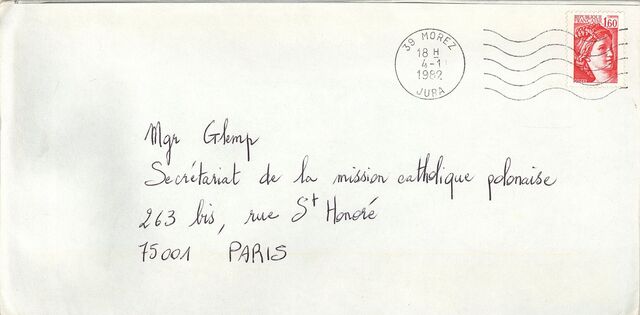 39 MOREZ
18 H
4-1
1982
JURA
REPUBLIQUE
FRANCAISE
1.60
Mgr Glemp
Secrétariat de la mission catholique polonaise
263 bis, rue St Honoré
75001 PARIS